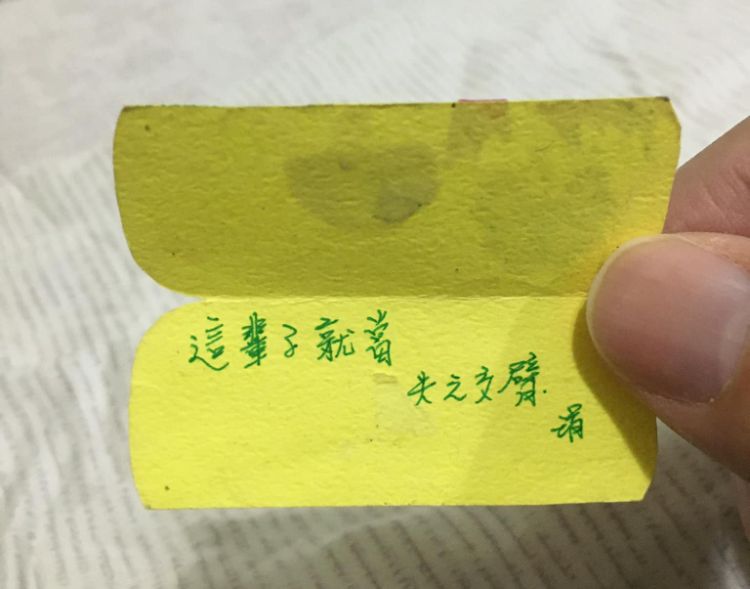 這輩子就當
失之交臂.
娟